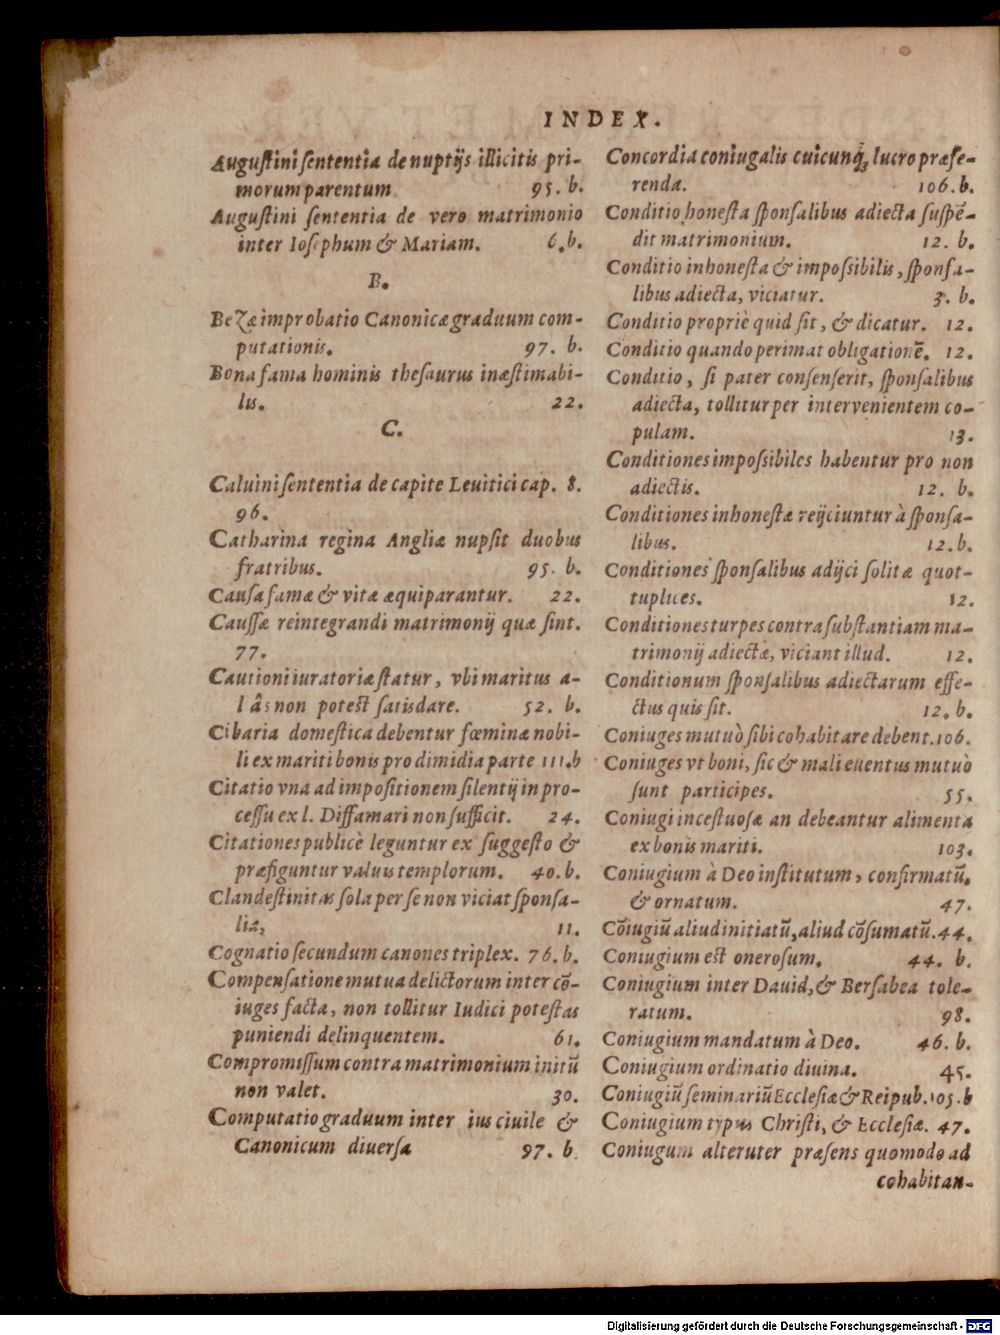 INDEX.
Augustini sententia de nuptijs illicitis pri-
morum parentum 95. b.
Augustini sententia de vero matrimonio
inter Iosephum & Mariam. 6. b.
B.
Bezæ improbatio Canonicæ graduum com-
putationis. 97. b.
Bona fama hominis thesaurus inæstimabi-
lis. 22.
C.
Caluini sententia de capite Leuitici cap. 8.
96.
Catharina regina Angliæ nupsit duobus
fratribus. 95. b.
Causa famæ & vitæ æquiparantur. 22.
Caussæ reintegrandi matrimonij quæ sint.
77.
Cautioni iuratoriæ statur, vbi maritus a-
liâs non potest satisdare. 52. b.
Cibaria domestica debentur fœminæ nobi-
li ex mariti bonis pro dimidia parte 111. b
Citatio vna ad impositionem silentij in pro-
cessu ex l. Diffamari non sufficit. 24.
Citationes publicè leguntur ex suggesto &
præfiguntur valuis templorum. 40. b.
Clandestinitas sola per se non viciat sponsa-
lia, 11.
Cognatio secundum canones triplex. 76. b.
Compensatione mutua delictorum inter cō-
iuges facta, non tollitur Iudici potestas
puniendi delinquentem. 61.
Compromissum contra matrimonium initū
non valet. 30.
Computatio graduum inter ius ciuile &
Canonicum diuersa 97. b.
Concordia coniugalis cuicunq; lucro præfe-
renda. 106. b.
Conditio honesta sponsalibus adiecta suspē-
dit matrimonium. 12. b.
Conditio inhonesta & impossibilis, sponsa-
libus adiecta, viciatur. 3. b.
Conditio propriè quid sit, & dicatur. 12.
Conditio quando perimat obligationē. 12.
Conditio, si pater consenserit, sponsalibus
adiecta, tollitur per intervenientem co-
pulam. 13.
Conditiones impossibiles habentur pro non
adiectis. 12. b.
Conditiones inhonestæ reijciuntur à sponsa-
libus. 12. b.
Conditiones sponsalibus adijci solitæ quot-
tuplices. 12.
Conditiones turpes contra substantiam ma-
trimonij adiectæ, viciant illud. 12.
Conditionum sponsalibus adiectarum effe-
ctus quis sit. 12. b.
Coniuges mutuò sibi cohabitare debent. 106.
Coniuges vt boni, sic & mali euentus mutuò
sunt participes. 55.
Coniugi incestuosæ an debeantur alimenta
ex bonis mariti. 103.
Coniugium à Deo institutum, confirmatū,
& ornatum. 47.
Cōiugiū aliud initiatū, aliud cōsumatū. 44.
Coniugium est onerosum. 44. b.
Coniugium inter Dauid, & Bersabea tole-
ratum. 98.
Coniugium mandatum à Deo. 46. b.
Coniugium ordinatio diuina. 45.
Coniugiū seminariū Ecclesiæ & Reipub. 105. b
Coniugium typus Christi, & Ecclesiæ. 47.
Coniugum alteruter præsens quomodo ad
cohabitan-
Digitalisierung gefördert durch die Deutsche Forschungsgemeinschaft - DFG